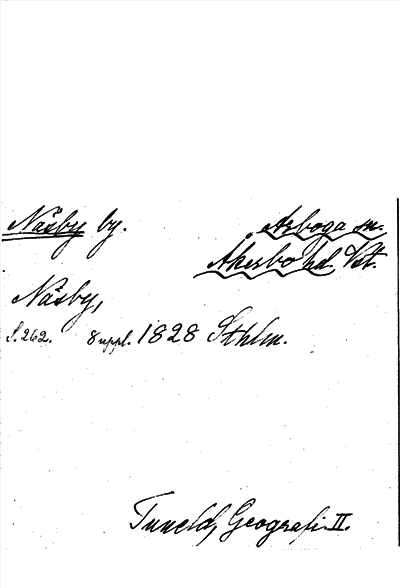 Näsby by. Arboga sn.
Åkerbo hd. Vstt.
Näsby,
S. 262. 8 uppl. 1828 Sthlm.
Tuneld, Geografi. II.